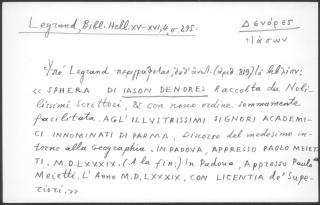 Legrand, Bibl. Hell. XV-XVI, 4, σ. 295.
Δενόρες
Ἰάσων
Ὑπό Legrand περιγράφεται, ἐνθ' ἀνωτ. (ἀριθ. 819) τό βιβλίον:
« SPHERA DI IASON DENORES Raccolta da Nobi-
lissimi scrittori, & con nouo ordine sommamente
facilitata. AGL' ILLVSTRISSIMI SIGNORI ACADEMI-
CI INNOMINATI DI PARMA. Discorso del medesimo in-
torno alla Geographia. IN PADOVA, APPRESSO PAOLO MEIET-
TI. M.D.LXXXIX. (A la fin:) In Padova, Appresso Paulo
Meietti. L'Anno M.D.LXXXIX. CON LICENTIA de' Supe-
riori.»